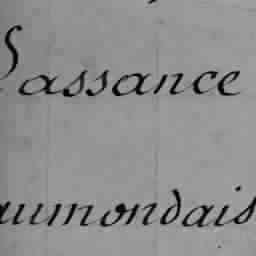 Lassance
aumondais